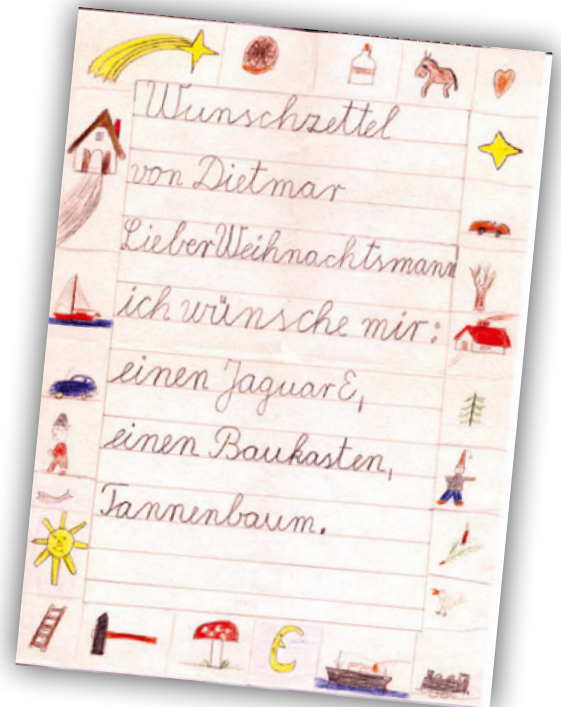 Wunschzettel
von Dietmar
Lieber Weihnachtsmann
ich wünsche mir:
einen Jaguar E,
einen Baukasten,
Tannenbaum.